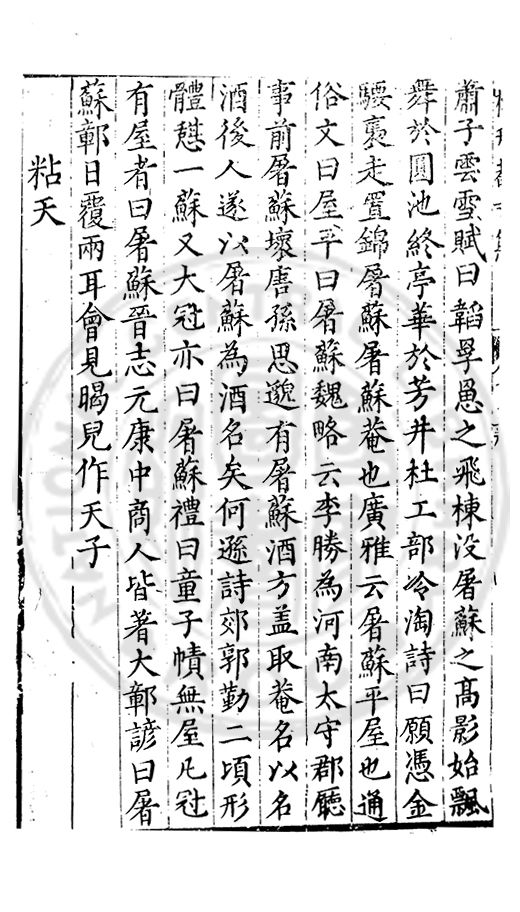 蕭子雲雪賦曰韜罘罳之飛棟没屠蘇之高影始飄
舞於圓池終亭華於芳井杜工部冷淘詩曰願憑金
騕褭走置錦屠蘇屠蘇菴也廣雅云屠蘇平屋也通
俗文曰屋平曰屠蘇魏略云李勝為河南太守郡廳
事前屠蘇壞唐孫思邈有屠蘇酒方盖取菴名以名
酒後人遂以屠蘇為酒名矣何遜詩郊郭勤二頃形
體憇一蘇又大冠亦曰屠蘇禮曰童子幘無屋凡冠
有屋者曰屠蘇晉志元康中商人皆著大鄣諺曰屠
蘇鄣日覆兩耳會見瞎兒作天子
粘天